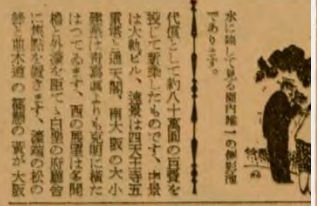 水に映して見る園内唯一の撮影場
であります。
代償として約八十萬圓の巨費を
投じて新築したものです、中景
は大軌ビル、遠景は四天王寺五
重塔と通天閣、南大阪の大小
建築は青寫眞よりも克明に横た
はつてゐます、西の展望は多聞
櫓と外濠を距てゝ白堊の府廳舎
に焦点を置きます、濠端の松の
緑と並木道の篠懸の黄が大阪